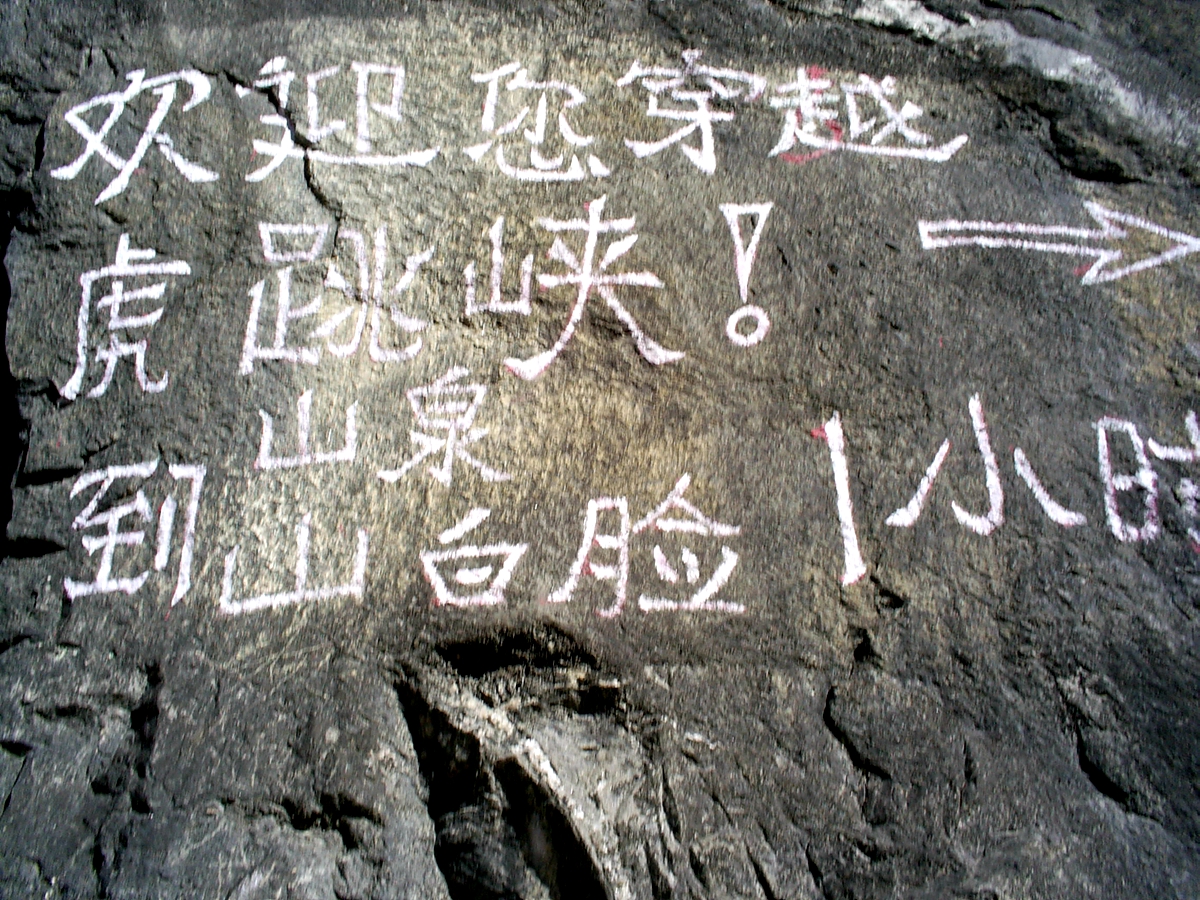 欢迎您穿越
虎跳峡！
山泉
到山白脸 1小时